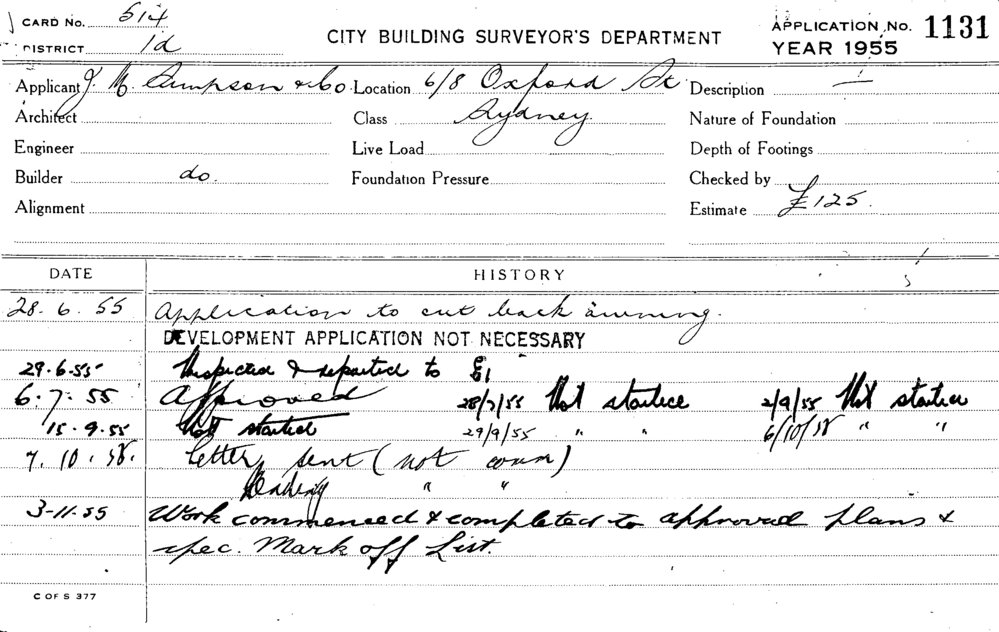 CARD No. 514
DISTRICT 1d
CITY BUILDING SURVEYOR'S DEPARTMENT
APPLICATION No. 1131
YEAR 1955
Applicant J. M. Sampson & Co. Location 6/8 Oxford St Description
Architect Class Sydney. Nature of Foundation
Engineer Live Load Depth of Footings
Builder do. Foundation Pressure Checked by
Alignment Estimate £125.
DATE HISTORY
28. 6. 55 Application to cut back awning.
DEVELOPMENT APPLICATION NOT NECESSARY
29.6.55 Inspected & reported to
6. 7. 55 Approved 28/7/55 Not started 2/9/55 Not started
15.9.55 Not started 29/9/55 " " 6/10/55 " "
7. 10. 55. Letter sent (not comm)
" "
3-11-55 Work commenced & completed to approved plans &
spec. Mark off List.
C OF S 377